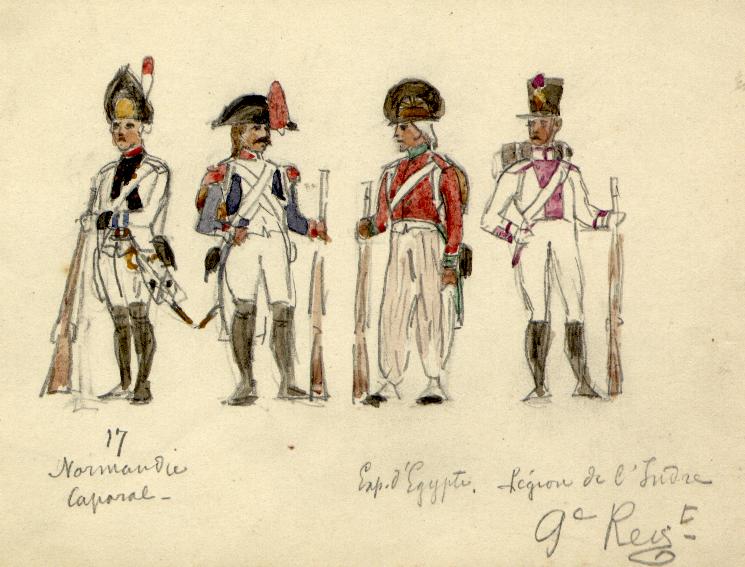 17
Normandie
Caporal -
Exp. d'Egypte.
Légion de l'Indre
9e Regt